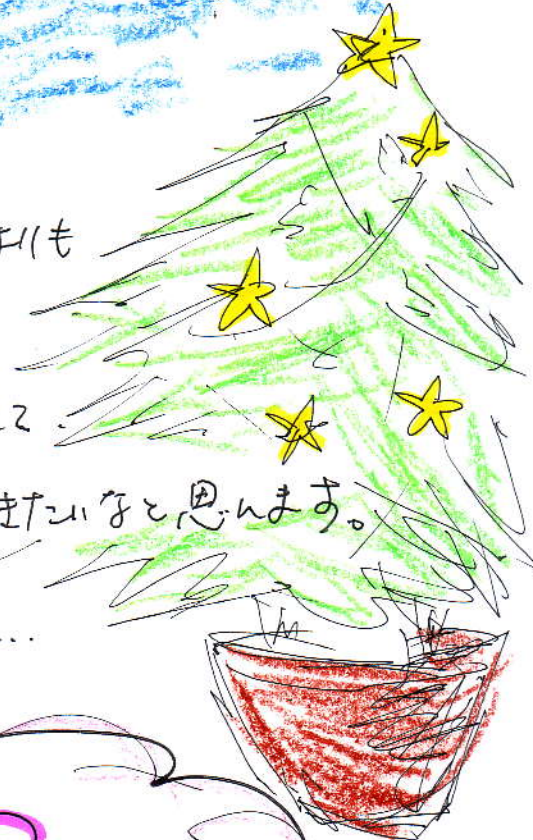 よりも
て、
きたいなと思います。
...